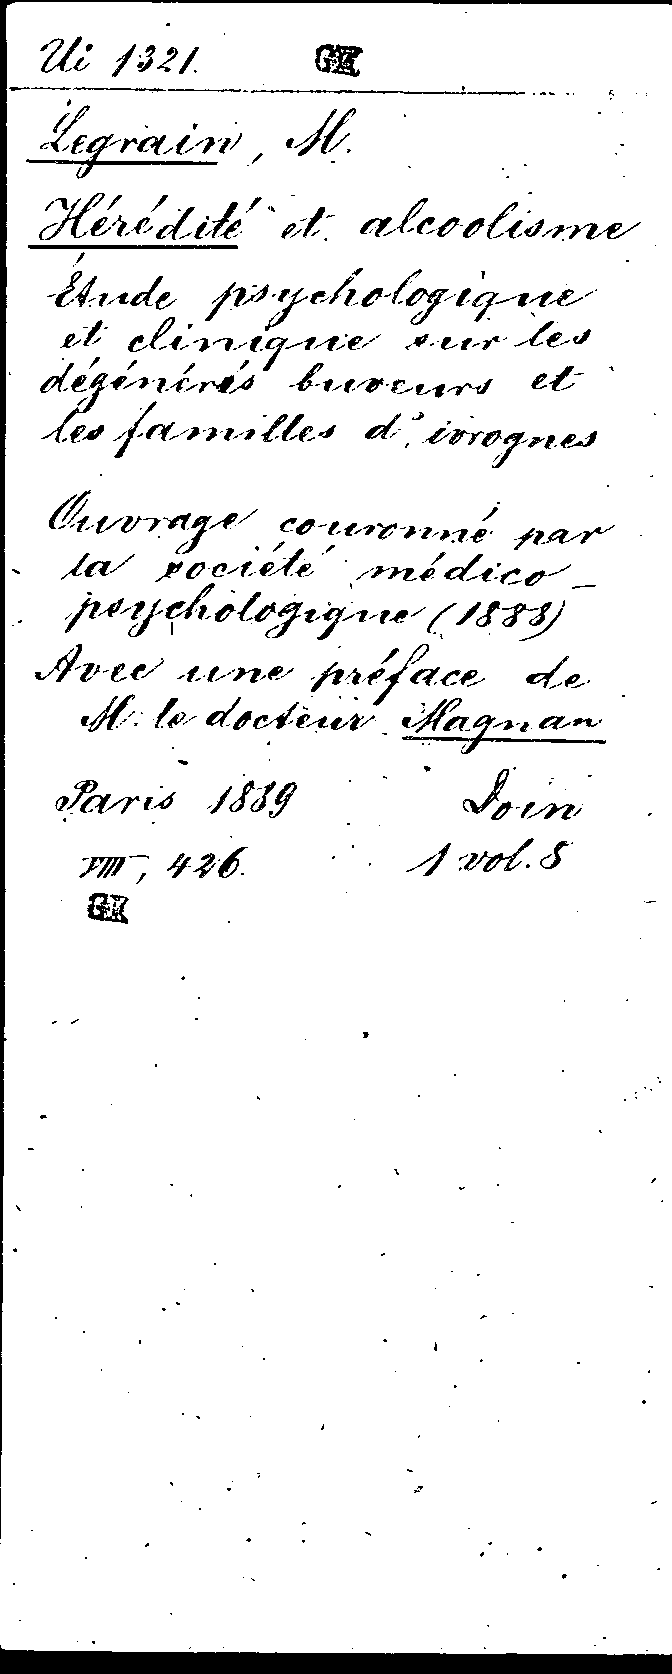 Ui 1321. GK
Legrain, M.
Hérédité et alcoolisme
Étude psychologique
et clinique sur les
dégénérés buveurs et
les familles d'ivrognes
Ouvrage couronné par
la société médico-
psychologique (1888)
Avec une préface de
M. le docteur Magnan
Paris 1889 Doin
VIII, 426. 1 vol. 8
GK